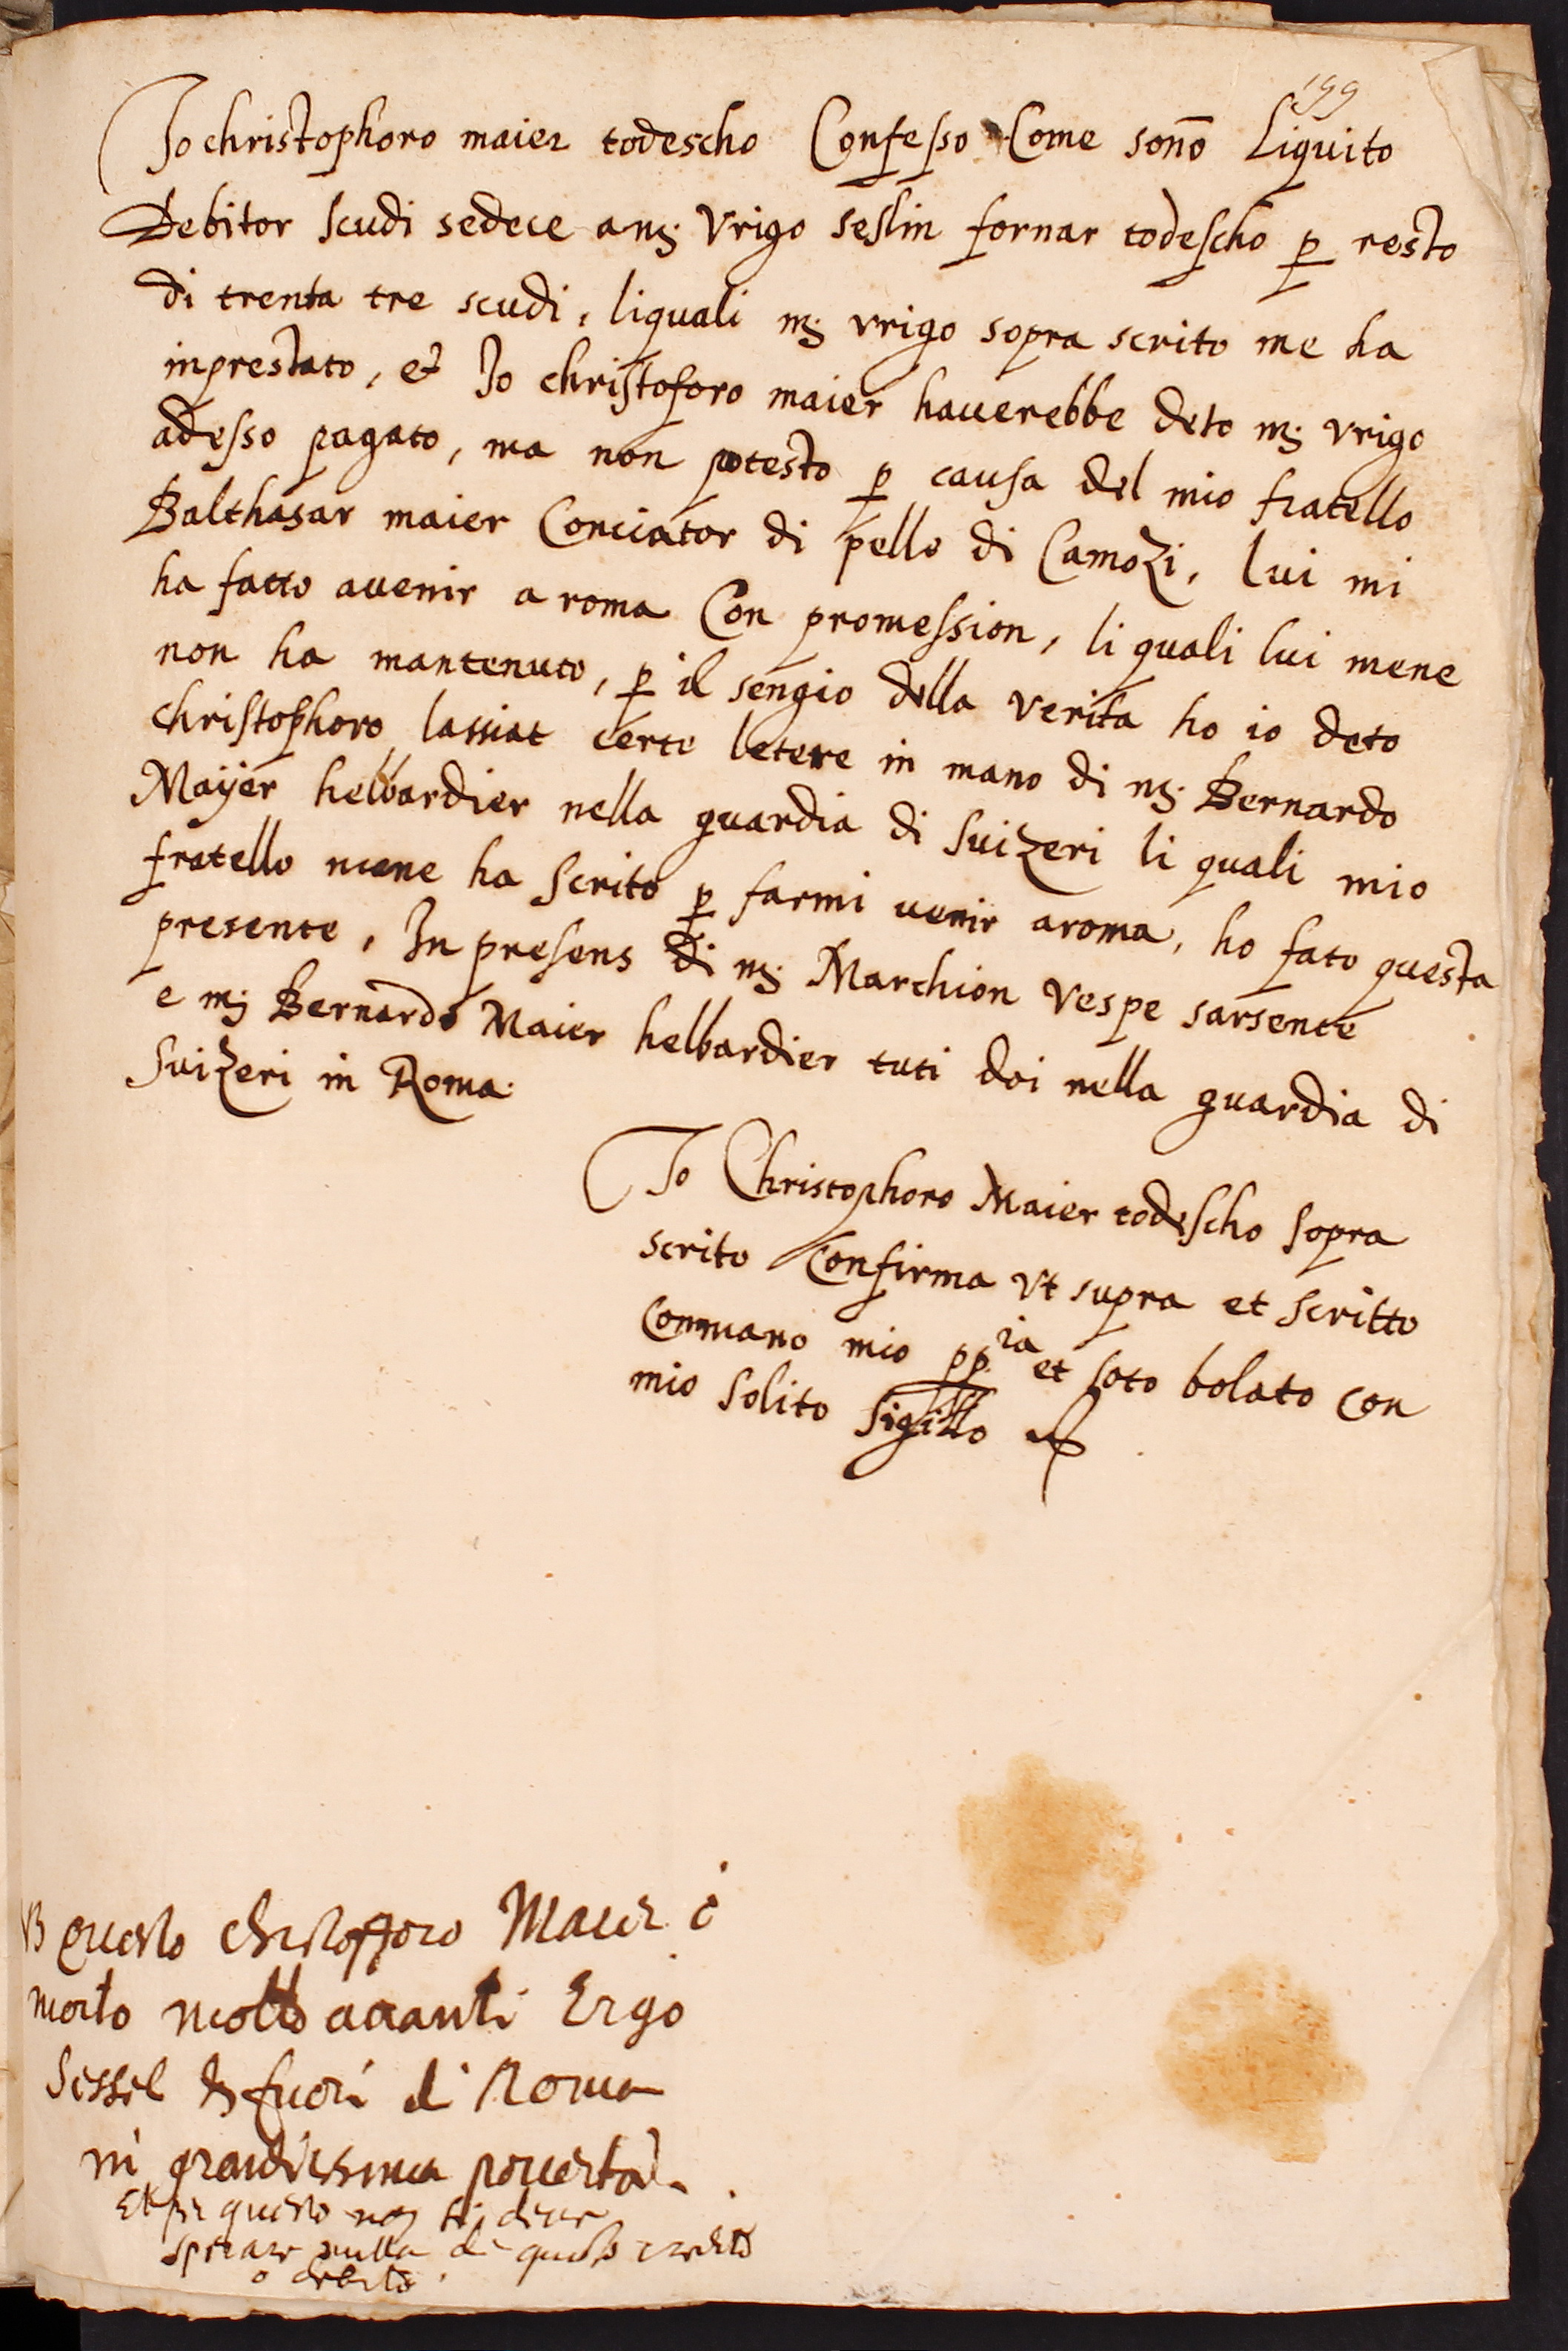 199
Jo christophoro maier todescho Confesso Come sonō Liquito
Debitor scudi sedece a mʒ Vrigo seslin fornar todescho ꝑ resto
di trenta tre scudi, liquali mʒ vrigo sopra scrito me ha
inprestato, et Jo christoforo maier hauerebbe deto mʒ vrigo
adesso pagato, ma non potesto ꝑ causa del mio fratello
Balthasar maier Conciator di pelle di Camozi, lui mi
ha fatto auenir a roma Con promession, li quali lui mene
non ha mantenuto, ꝑ il sengio della verita ho io deto
christophoro lassiat certe letere in mano di mʒ Bernardo
Maÿer helbardier nella guardia di Suizeri li quali mio
fratello mene ha scrito ꝑ farmi uenir aroma, ho fato questa
presente, In presens di mʒ Marchion Vespe sarsente
e mʒ Bernardo Maier helbardier tuti doi nella guardia di
Suizeri in Roma.
Jo Christophoro Maier todescho sopra
scrito Confirma vt supra et scritto
Conmano mio pp.ia et soto bolato con
mio solito sigillo
questo christofforo Maier è
morto molto auanti Ergo
Sessel fuori di Roma
in grandissima pouertà.
Et per questo non si deue
sperare nulla di questo credito
o debito.